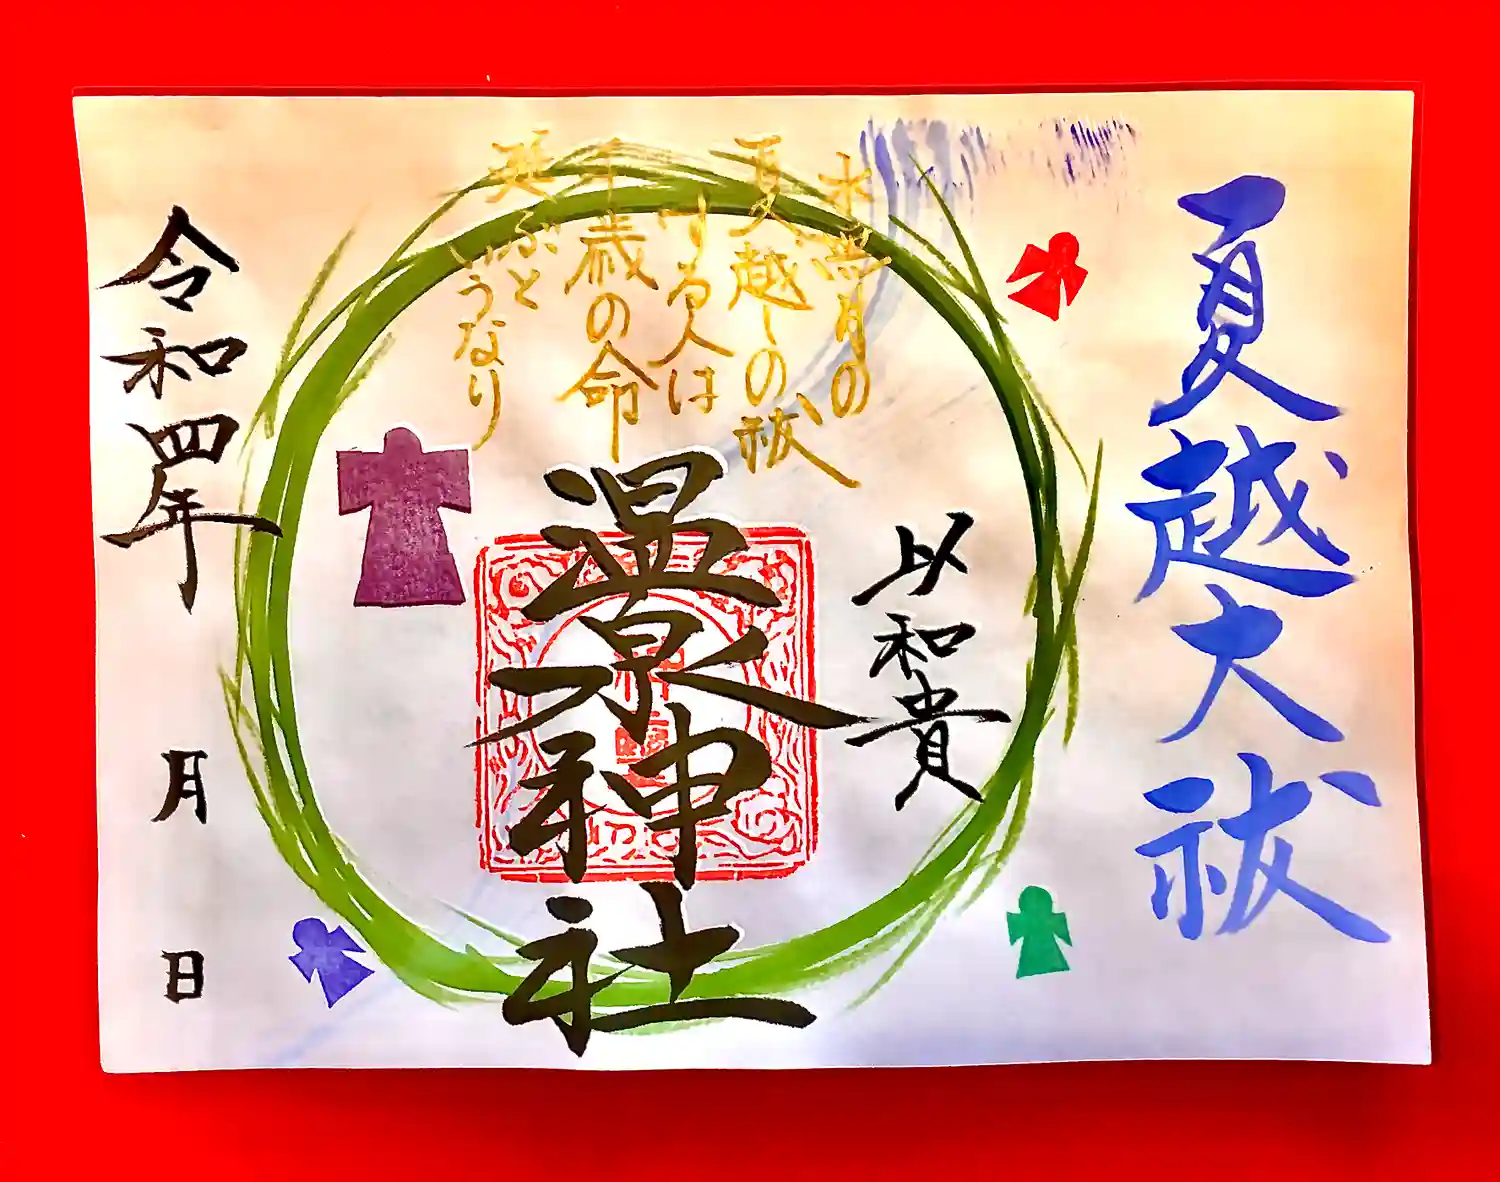 夏越大祓
以和貴
水無月の
夏越しの祓
する人は
千歳の命
延ぶと
いうなり
温泉神社
令和四年
月
日